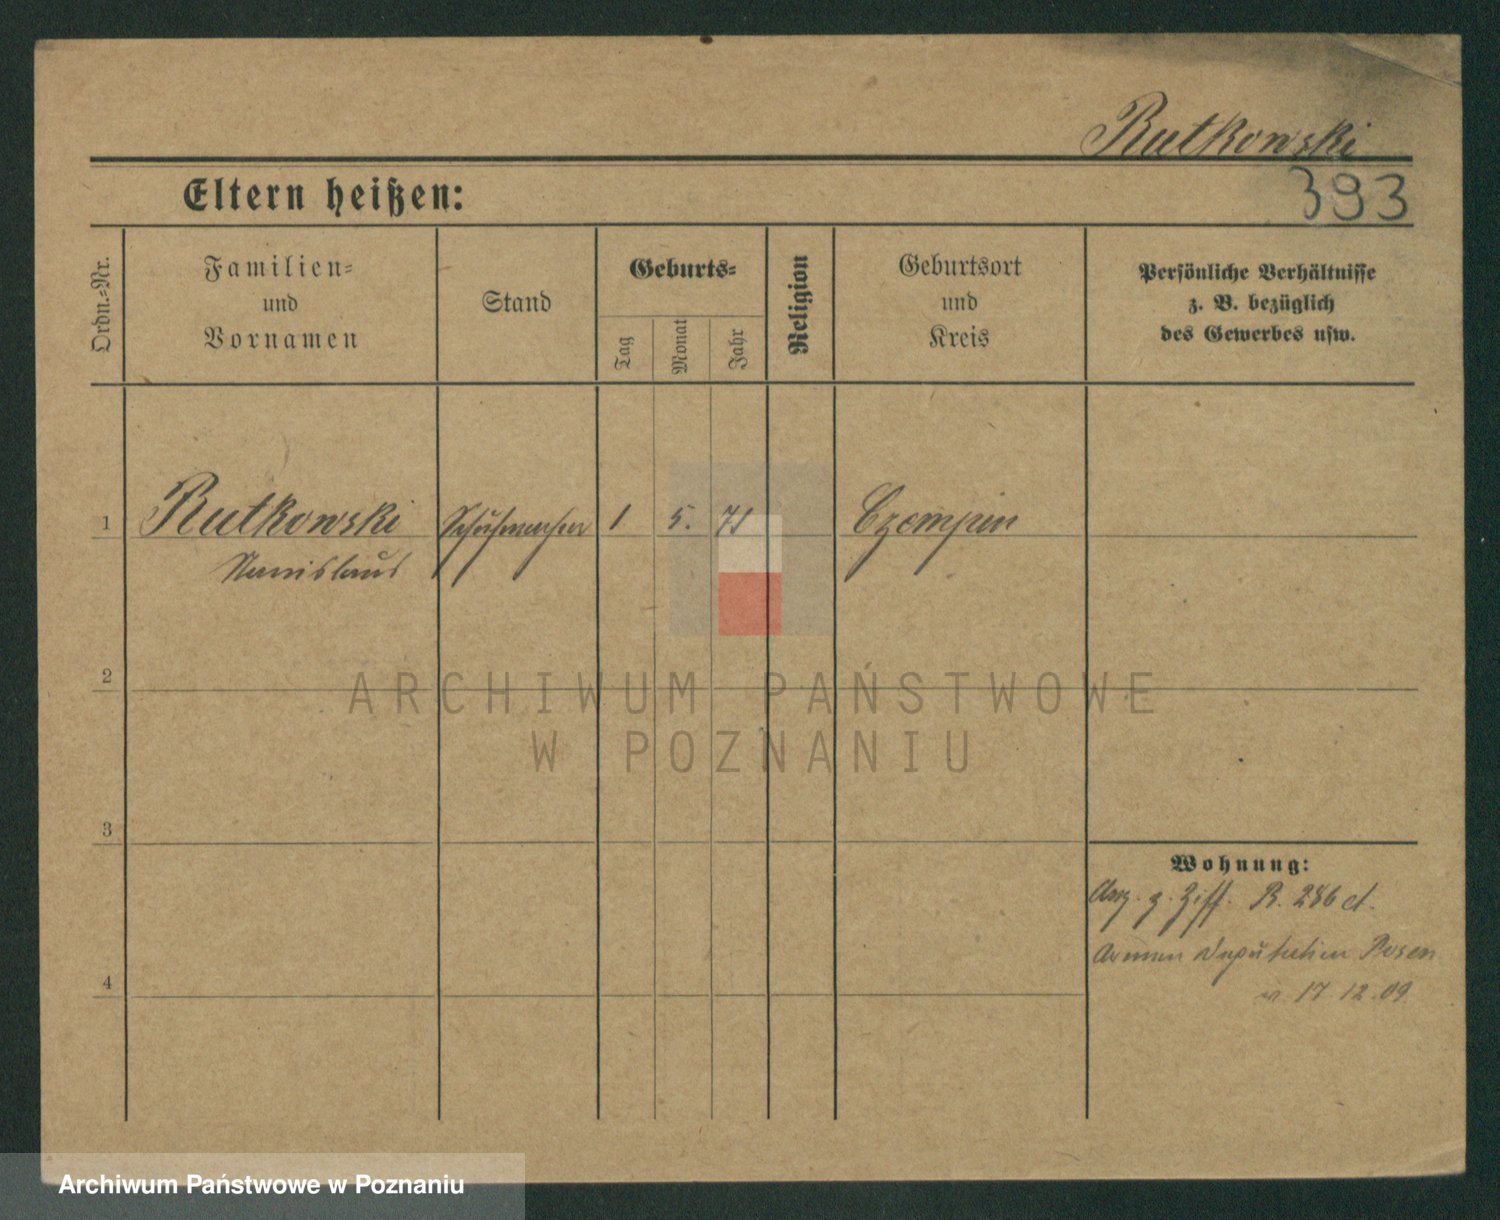 Rutkowski
Eltern heißen:
393
Ordn.-Nr.
Familien-
und
Vornamen
Stand
Geburts-
Tag
Monat
Jahr
Religion
Geburtsort
und
Kreis
Persönliche Verhältnisse
z. B. bezüglich
des Gewerbes usw.
1 Rutkowski Schuhmacher 1 5. 71 Czempin
Stanislaus
2
ARCHIWUM PAŃSTWOWE
W POZNANIU
3
Wohnung:
Anz. z. Ziff. R. 286 ct.
Armen Deputation Posen
v. 17.12.09
4
Archiwum Państwowe w Poznaniu